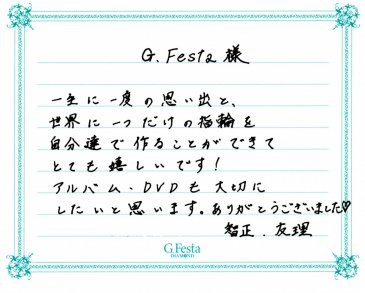 G.Festa様
一生に一度の思い出と、
世界に一つだけの指輪を
自分達で作ることができて
とても嬉しいです!
アルバム・DVDも大切に
したいと思います。ありがとうございました♡
智正.友理
G.Festa
DIAMOND